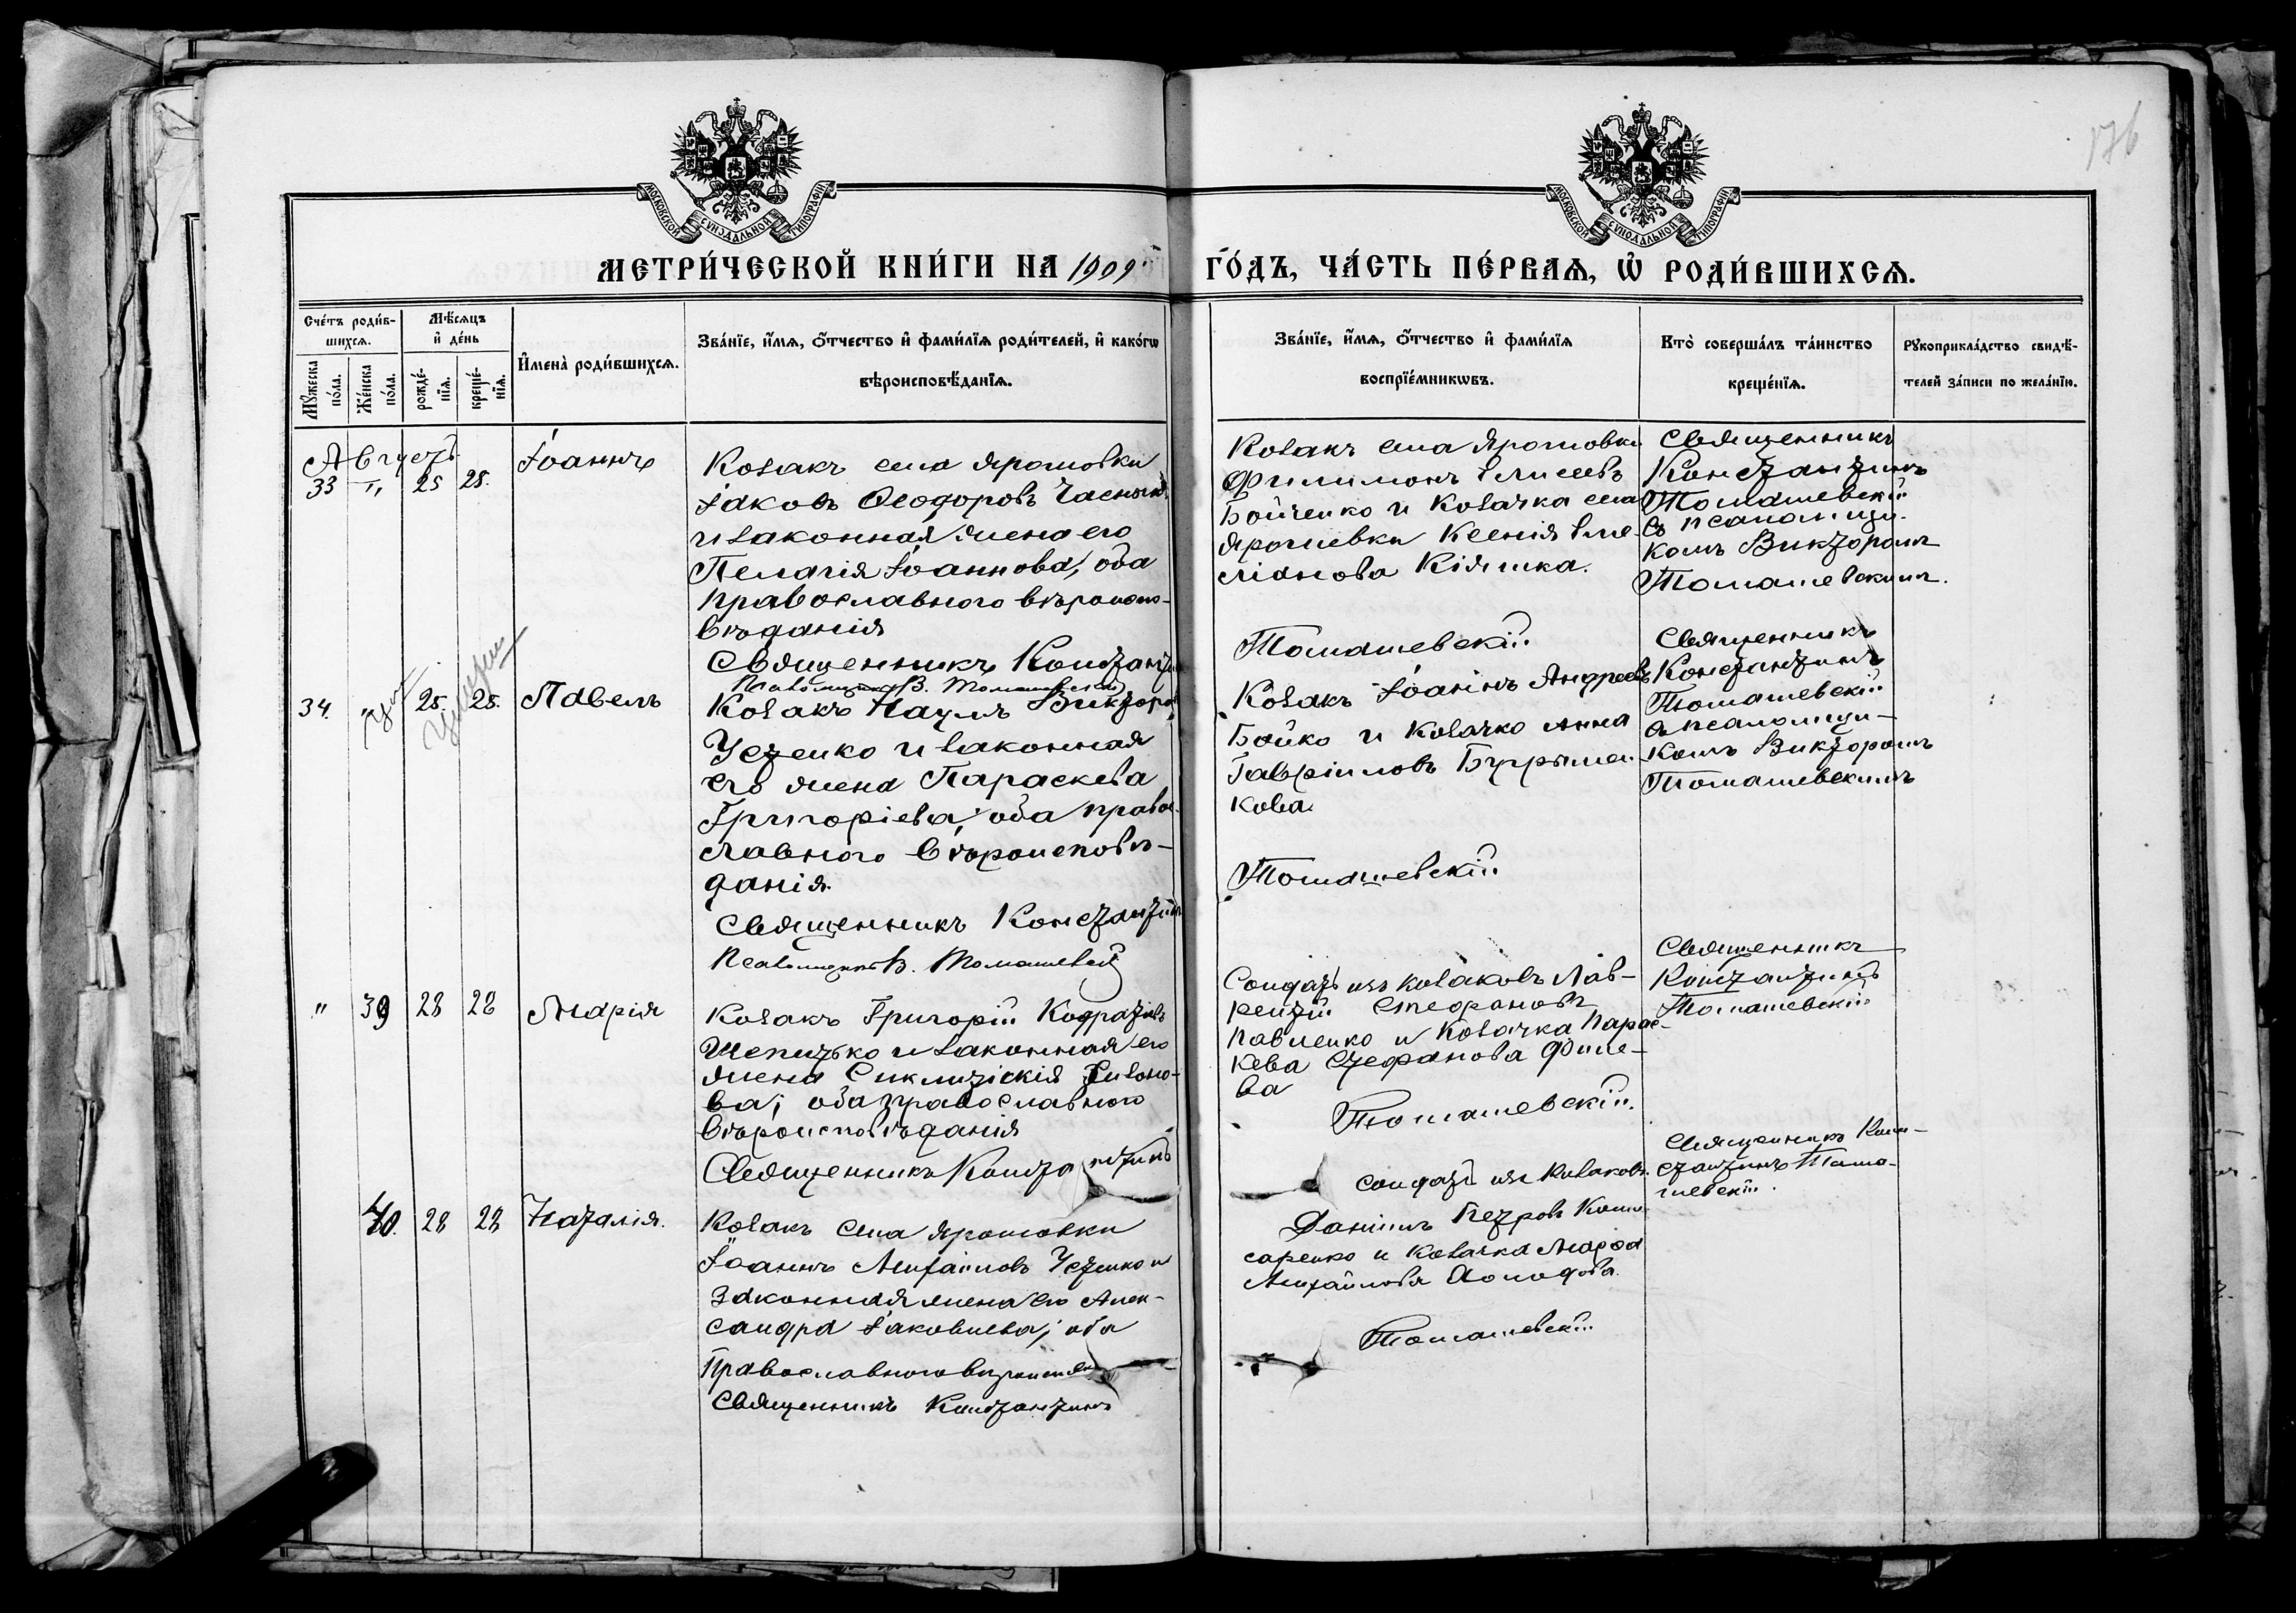 176
МОСКОВСКОЙ СУНОДАЛЬНОЙ ТИПОГРАФІИ
МОСКОВСКОЙ СУНОДАЛЬНОЙ ТИПОГРАФІИ
МЕТРИ́ЧЕСКОЙ КНИ́ГИ НА 1909 ГО́ДЪ, ЧА́СТЬ ПЕ́РВАѦ, Ѡ҆ РОДИ́ВШИХСѦ.
Сче́тъ роди́в-
шихсѧ.
Мꙋ́жеска по́ла.
Же́нска по́ла.
Мѣ́сѧцъ
и҆ де́нь
рожде́-
нїѧ.
креще́-
нїѧ.
И҆мена̀ роди́вшихсѧ.
Зва́нїе, и҆́мѧ, ѻ҆́тчество и҆ фами́лїѧ роди́телей, и҆ како́гѡ
вѣроисповѣ́данїѧ.
Зва́нїе, и҆́мѧ, ѻ҆́тчество и҆ фами́лїѧ
воспрїе́мникѡвъ.
Кто̀ соверша́лъ та́инство
креще́нїѧ.
Рꙋкоприкла́дство свидѣ́-
телей за́писи по жела́нїю.
Августъ
33 " 25 25. Іоаннъ
Козакъ села Ярошовки
Іаковъ Ѳеодоровъ
и законная жена его
Пелагія Іоаннова, оба
православнаго вѣроиспо-
вѣданія
Священникъ Константинъ
Псаломщикъ В. Томашевскій
Козакъ села Ярошовки
Филимонъ Елисеевъ
Бойченко и Козачка села
Ярошевки Ксенія Еме-
ліанова Кіяшка.
Томашевскій
Священникъ
Константинъ
Томашевскій
съ псаломщи-
комъ Викторомъ
Томашевскимъ.
34. " 25. 25. Павелъ
Козакъ Наумъ Викторовъ
Устенко и законная
его жена Параскева
Григоріева, оба право-
славнаго вѣроисповѣ-
данія.
Священникъ Константинъ
Псаломщикъ В. Томашевскій
Козакъ Іоаннъ Андреевъ
Бойко и Козачка Анна
Гавріилова
кова.
Томашевскій
Священникъ
Константинъ
Томашевскій
съ псаломщи-
комъ Викторомъ
Томашевскимъ
" 39 28 28 Марія
Козакъ Григорій Кодратіевъ
Шепитько и законная его
жена Синклитикія
ва; оба православнаго
вѣроисповѣданія
Священникъ Константинъ
Солдатъ изъ козаковъ Лав-
рентій Стефановъ
Павленко и Козачка Парас-
кева Стефанова
ва
Томашевскій.
Священникъ
Константинъ
Томашевскій
40. 28 28 Наталія.
Козакъ села Ярошовки
Іоаннъ Михайловъ Устенко и
законная жена его Алек-
сандра Іаковлева; оба
Православнаго
Священникъ Константинъ
Солдатъ изъ Козаковъ
Даніилъ Петровъ Коми-
саренко и Козачка
Михайлова
Томашевскій
Священникъ Кон-
стантинъ Тома-
шевскій.